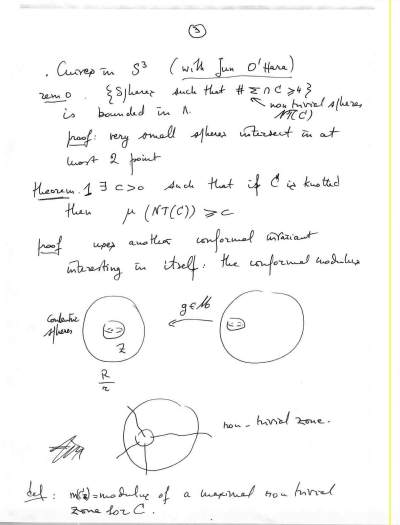 ③
. Curves in S³ (with Jun O'Hara)
rem 0. {Spheres such that # Σ ∩ C ⩾ 4}
non trivial spheres
NT(C)
is bounded in Λ.
proof: very small spheres intersect in at
most 2 point
theorem. 1 ∃ c>0 such that if C is knotted
then μ (NT(C)) ⩾ c
proof uses another conformal invariant
interesting in itself: the conformal modulus
g ∈ M
spheres
Z
R
r
non-trivial zone.
def: = modulus of a maximal non trivial
zone for C.